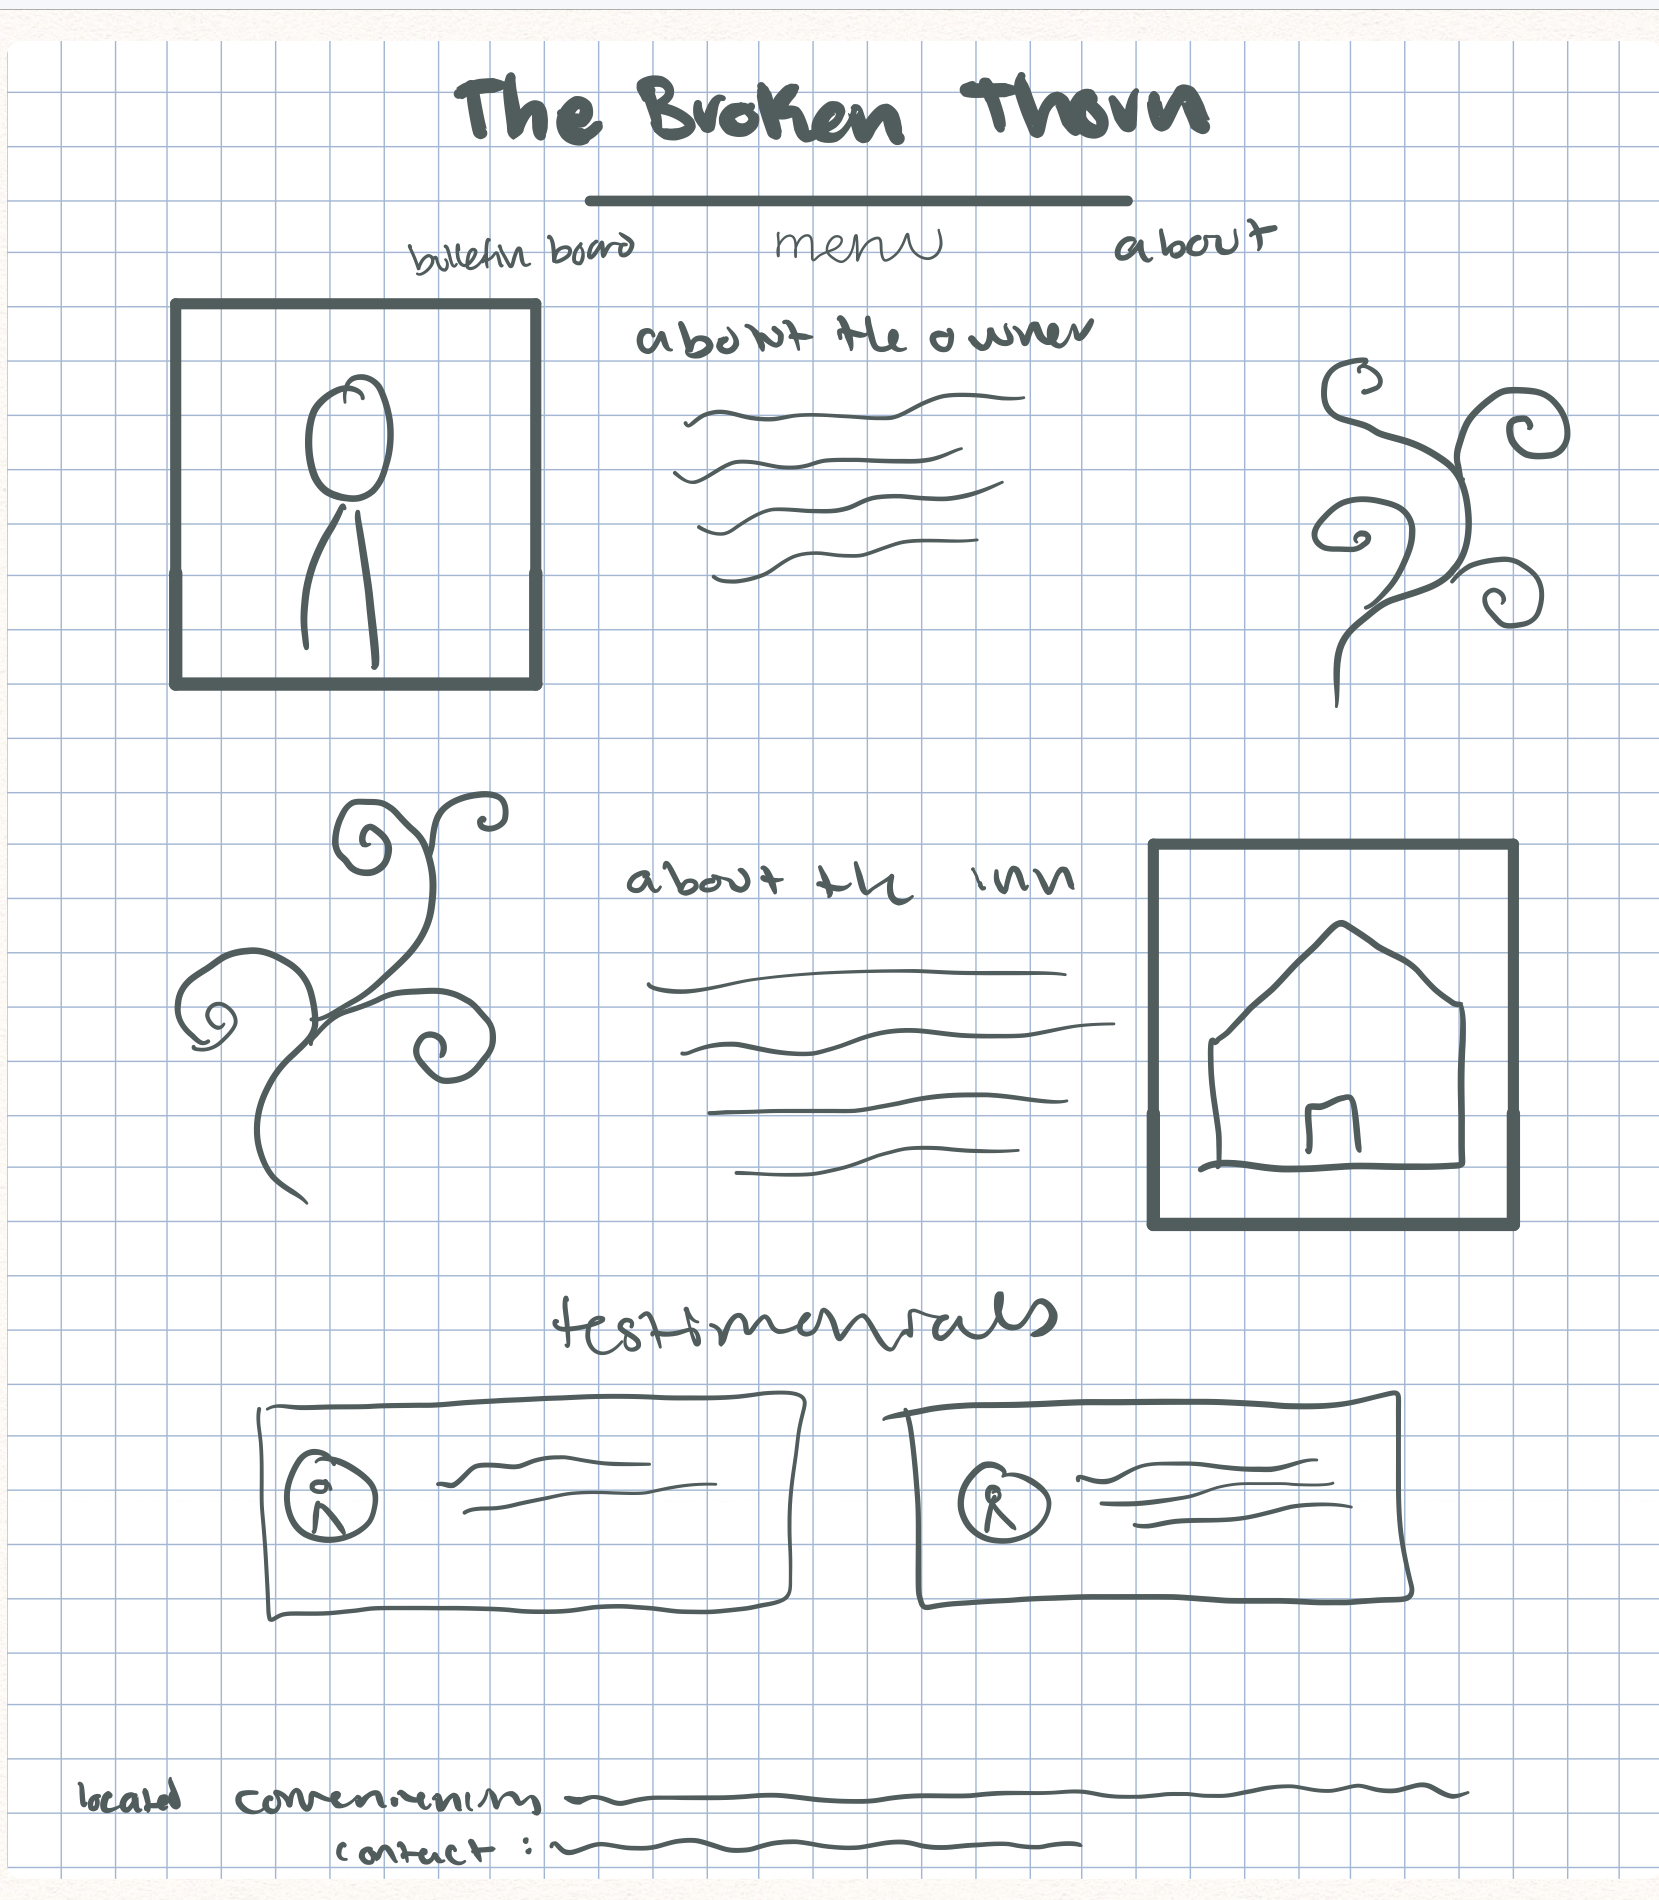 The Broken Thorn
bulletin board menu about
about the owner
about the inn
testimonials
located conveniently
contact :